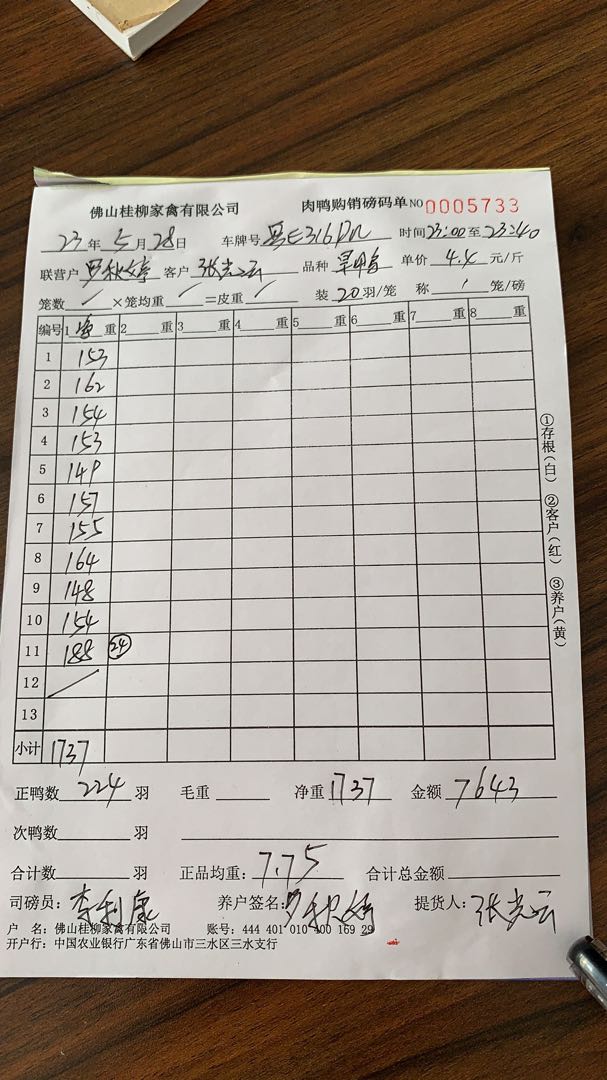 佛山桂柳家禽有限公司 肉鸭购销磅码单 NO 0005733
23年5月28日 车牌号 粤E316DN 时间 23:00至23:40
联营户 罗秋婷 客户 张光云 品种 单价 4.4 元/斤
笼数 / ×笼均重 / =皮重 / 装 20 羽/笼 称 笼/磅
编号 1 净 重 2 重 3 重 4 重 5 重 6 重 7 重 8 重
1 153
2 162
3 154
4 153
5 149
6 157
7 155
8 164
9 148
10 154
11 188 24
12 /
13
小计 1737
①存根(白) ②客户(红) ③养户(黄)
正鸭数 224 羽 毛重 净重 1737 金额 7643
次鸭数 羽
合计数 羽 正品均重: 7.75 合计总金额
司磅员: 李利康 养户签名: 罗秋婷 提货人: 张光云
户 名: 佛山桂柳家禽有限公司 账号: 444 401 010 400 169 29
开户行: 中国农业银行广东省佛山市三水区三水支行